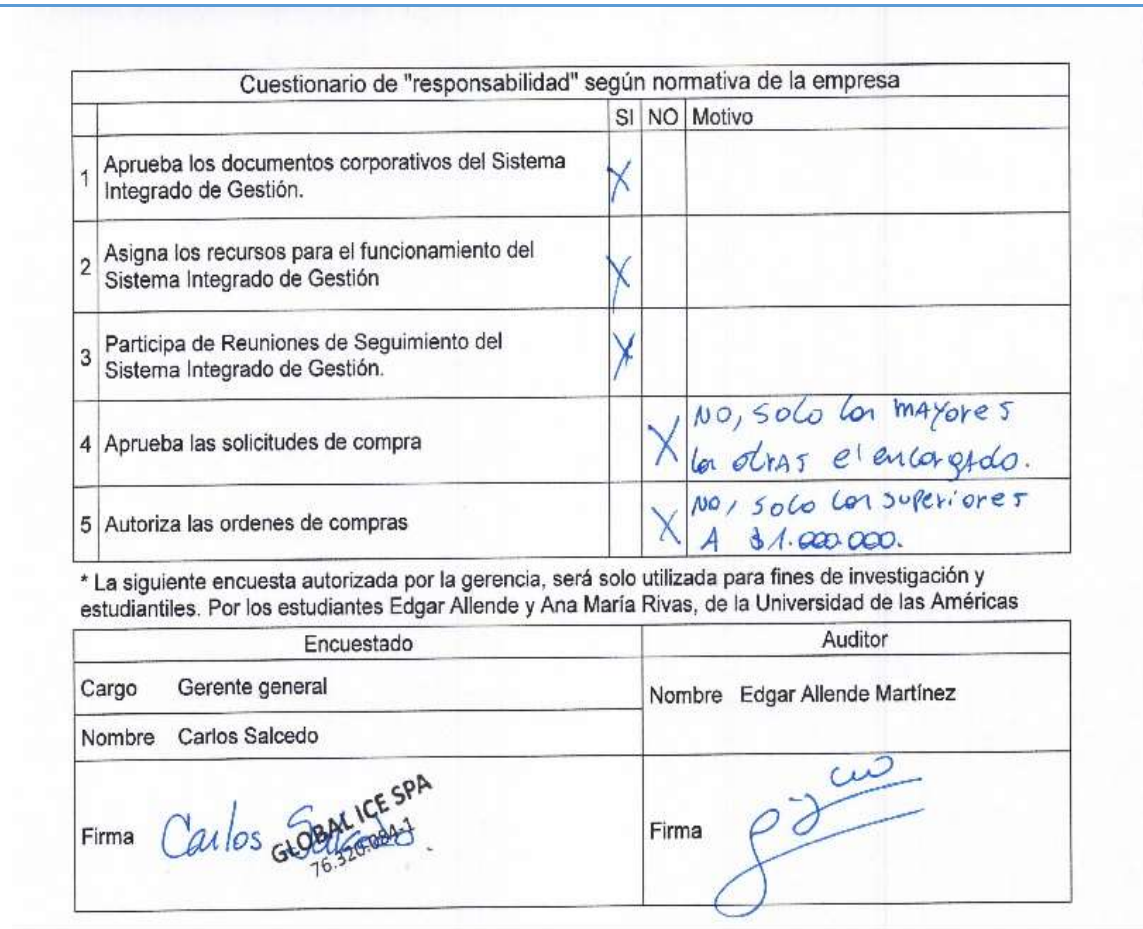 Cuestionario de "responsabilidad" según normativa de la empresa
SI NO Motivo
1 Aprueba los documentos corporativos del Sistema
Integrado de Gestión.
X
2 Asigna los recursos para el funcionamiento del
Sistema Integrado de Gestión
X
3 Participa de Reuniones de Seguimiento del
Sistema Integrado de Gestión.
X
4 Aprueba las solicitudes de compra
X
NO, solo las mayores
las otras el encargado.
5 Autoriza las ordenes de compras
X
NO, solo las superiores
A $1.000.000.
* La siguiente encuesta autorizada por la gerencia, será solo utilizada para fines de investigación y
estudiantiles. Por los estudiantes Edgar Allende y Ana María Rivas, de la Universidad de las Américas
Encuestado
Cargo Gerente general
Nombre Carlos Salcedo
Firma Carlos Salcedo
GLOBAL ICE SPA
76.320.084-1
Auditor
Nombre Edgar Allende Martínez
Firma